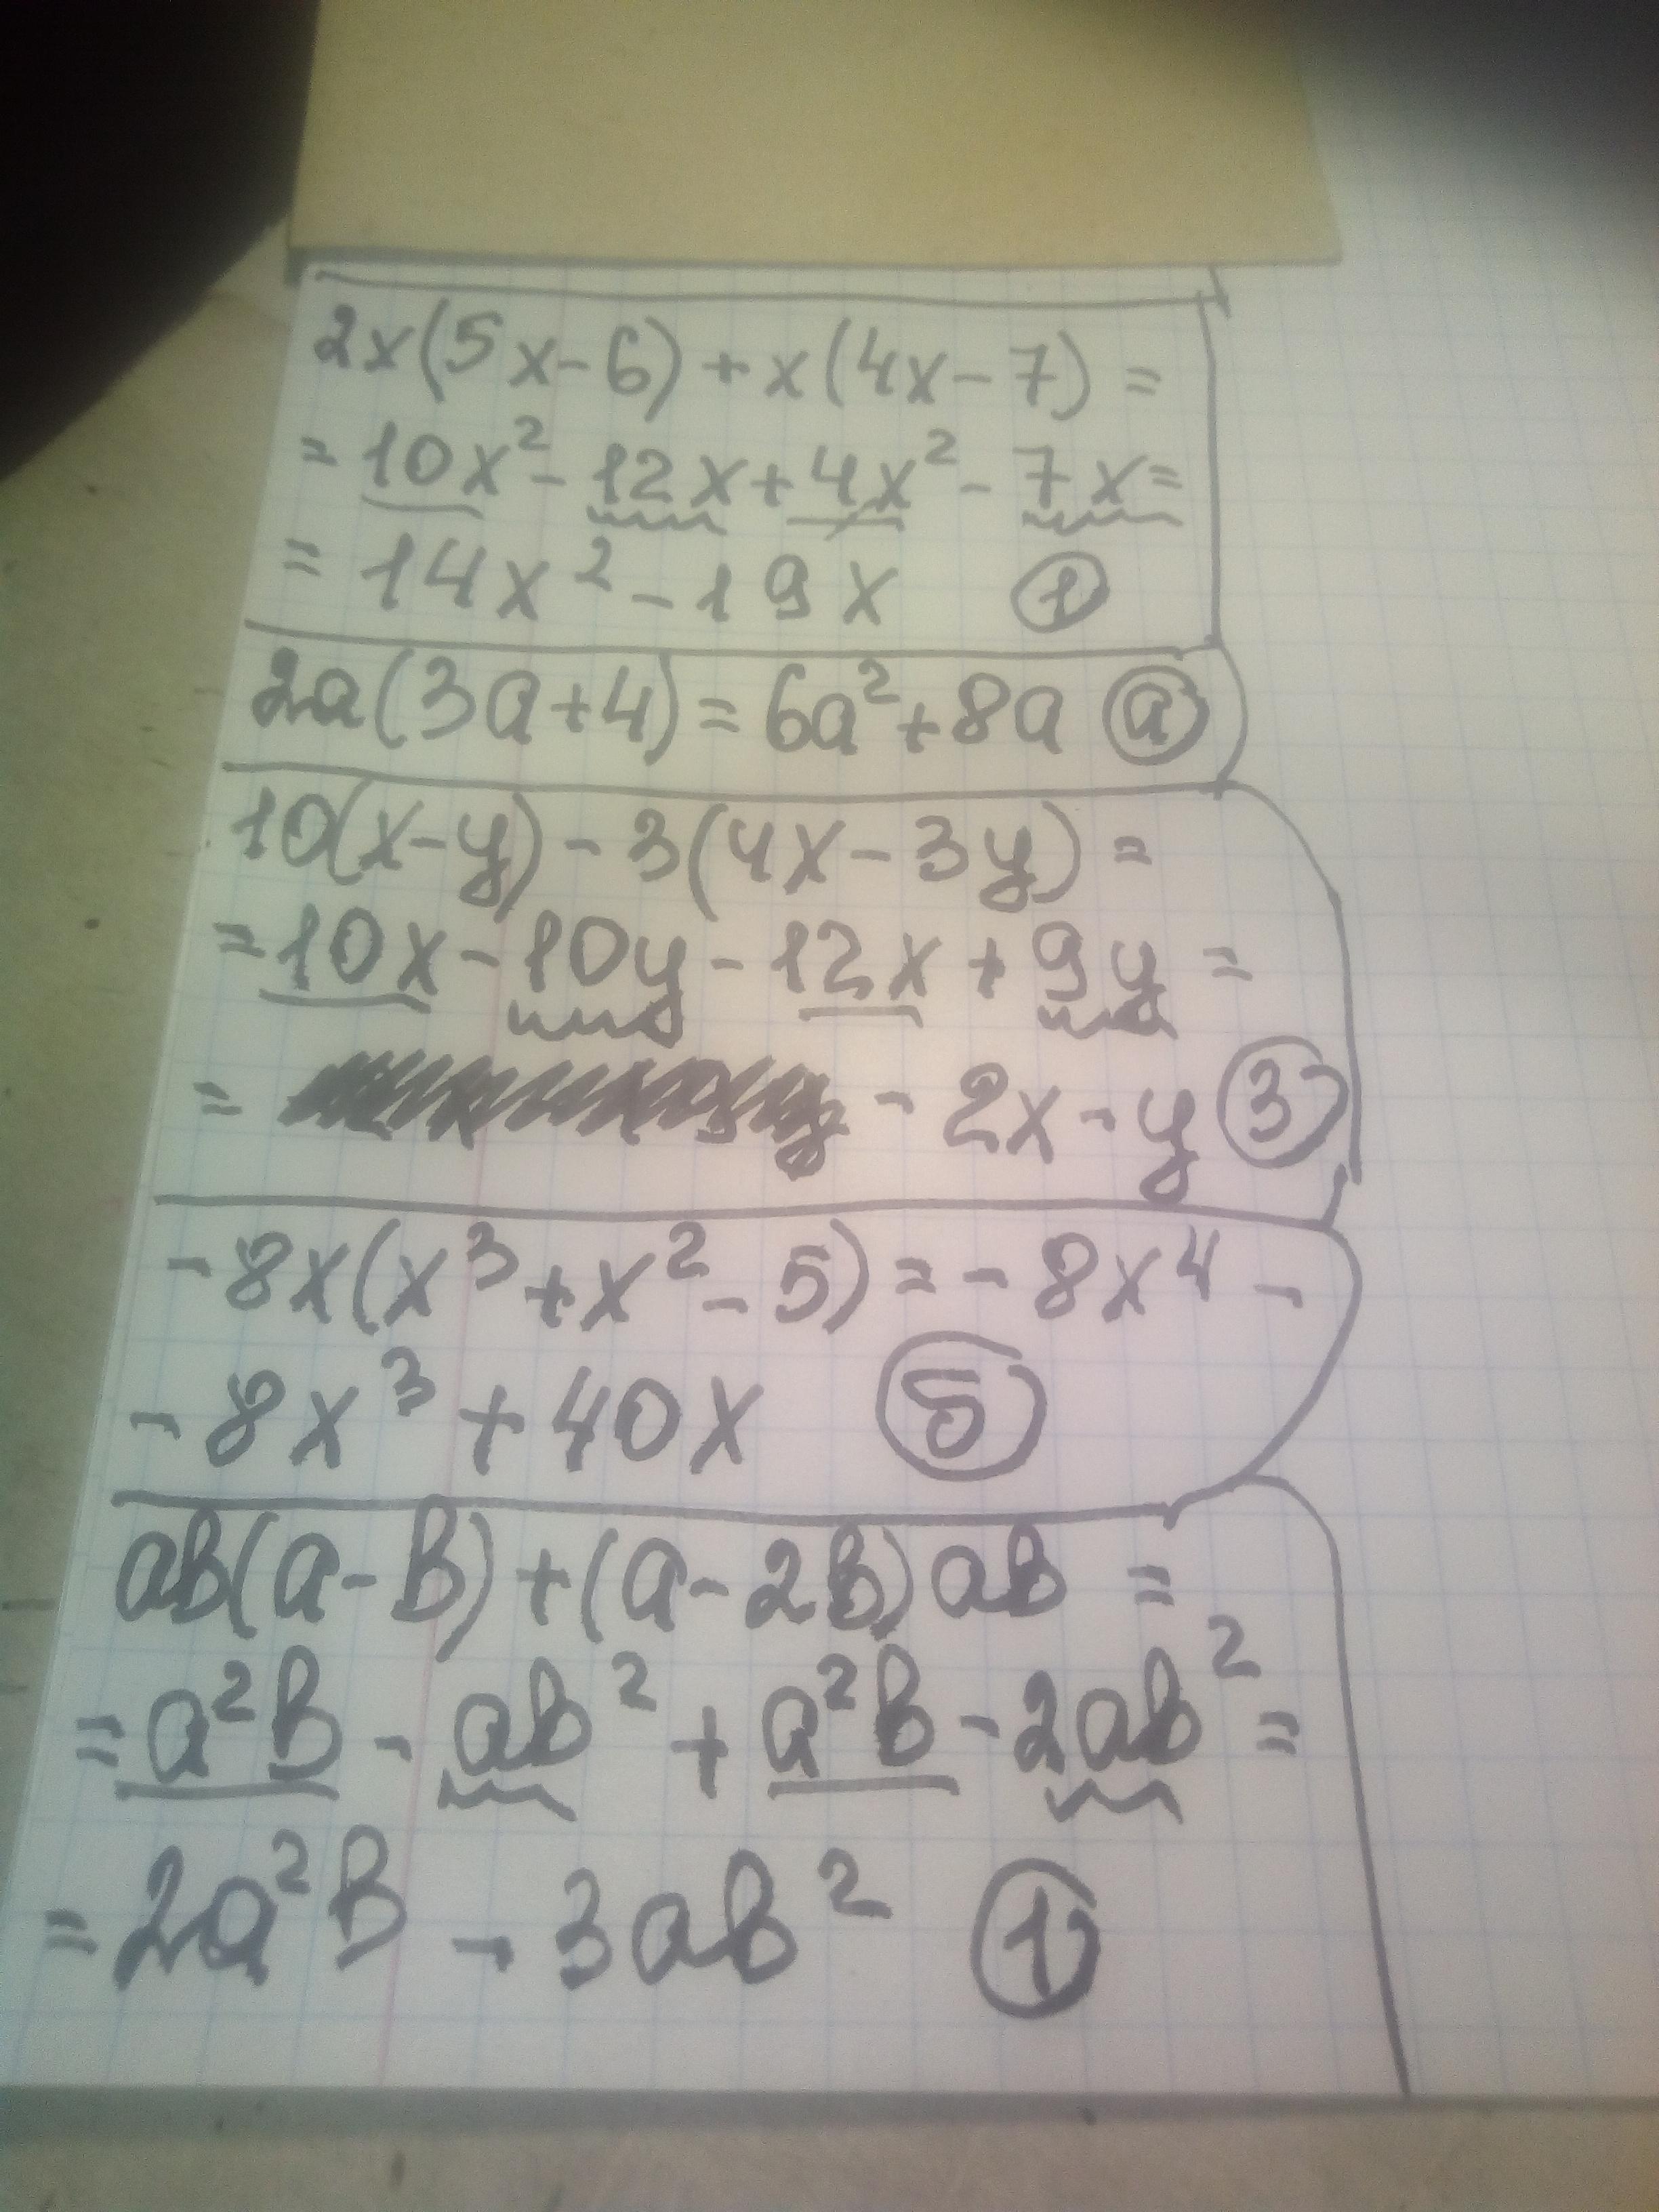 2x(5x-6)+x(4x-7)=
=10x²-12x+4x²-7x=
=14x²-19x ①
2a(3a+4)=6a²+8a ⓐ
10(x-y)-3(4x-3y)=
=10x-10y-12x+9y=
= -2x-y ③
-8x(x³+x²-5)=-8x⁴-
-8x³+40x Ⓑ
ab(a-b)+(a-2b)ab=
=a²b-ab²+a²b-2ab²=
=2a²b-3ab² ①